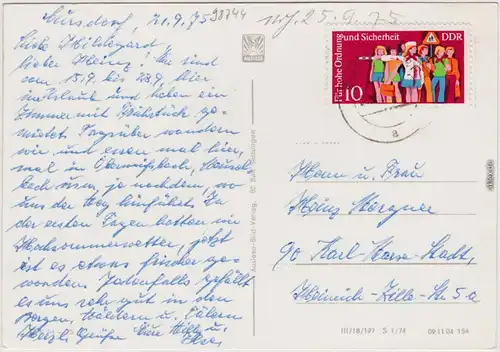 Mursdorf, 21.9.75 98744
Liebe Hildegard,
lieber Heinz! Wir sind
vom 15.9. bis 28.9. hier
in Urlaub und haben ein
Zimmer mit Frühstück ge-
mietet. Tagsüber wandern
wir und essen mal hier,
mal in Oberweißbach,
bach usw., je nachdem, wo
uns der Weg hinführt. In
den ersten Tagen hatten wir
Hochsommerwetter, jetzt
ist es etwas frischer ge-
worden. Jedenfalls gefällt
es uns sehr gut in den
Bergen, Wäldern u. Tälern
Herzl. Grüße Eure Willy u.
Else
25.9.75
Für hohe Ordnung und Sicherheit DDR
10
a
Herrn u. Frau
Heinz
90 Karl-Marx-Stadt,
Heinrich-Zille-Str. 5a
Auslese-Bild-Verlag, 62 Bad Salzungen
III/18/197 S 1/74 09 11 04 154